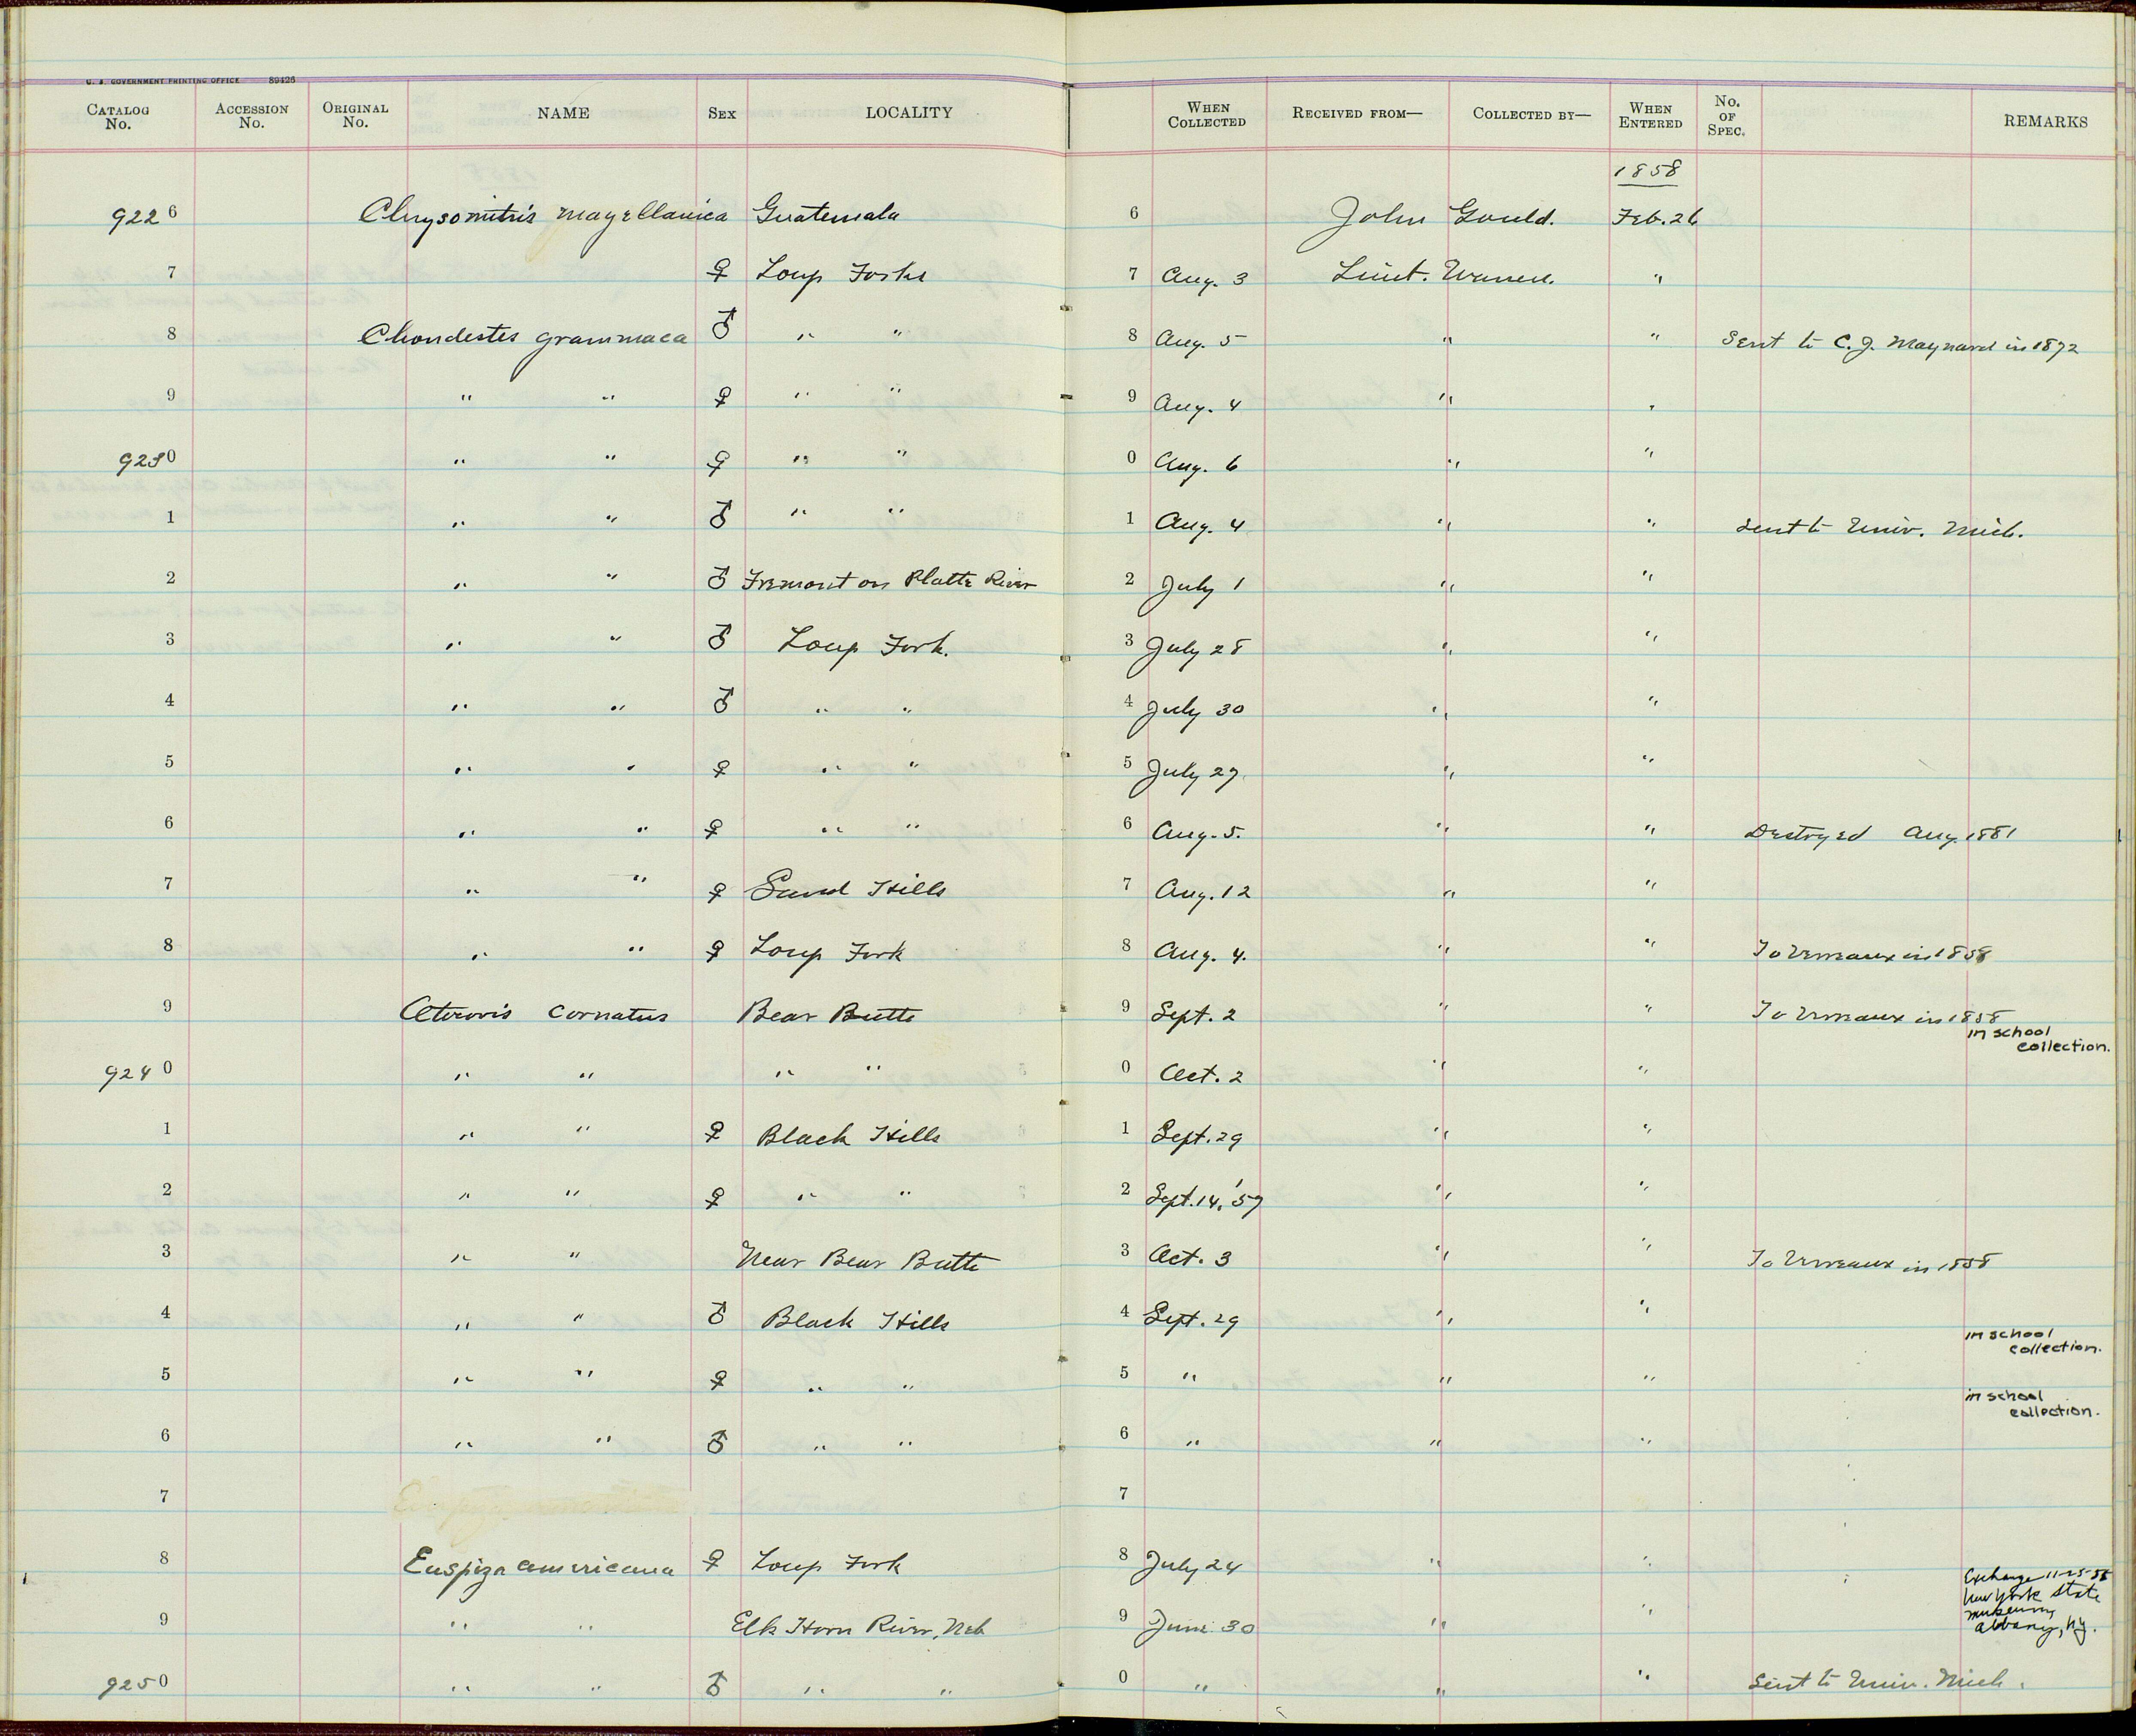 U. S. GOVERNMENT PRINTING OFFICE 89426
CATALOG No. ACCESSION No. ORIGINAL No. NAME SEX LOCALITY WHEN COLLECTED RECEIVED FROM— COLLECTED BY— WHEN ENTERED No. OF SPEC. REMARKS
1858
9226 Chrysomitris magellanica Guatemala 6 John Gould. Feb. 26
7 ♀ Loup Forks 7 Aug. 3 Lieut. Warren. "
8 Chondestes grammaca ♂ " " 8 Aug. 5 " " Sent to C. J. Maynard in 1872
9 " " ♀ " " 9 Aug. 4 " "
9230 " " ♀ " " 0 Aug. 6 " "
1 " " ♂ " " 1 Aug. 4 " " Sent to Univ. Mich.
2 " " ♂ Fremont on Platte River 2 July 1 " "
3 " " ♂ Loup Fork. 3 July 28 " "
4 " " ♂ " " 4 July 30 " "
5 " " ♀ " " 5 July 29 " "
6 " " ♀ " " 6 Aug. 5. " " Destroyed Aug. 1881
7 " " ♀ Sand Hills 7 Aug. 12 " "
8 " " ♀ Loup Fork 8 Aug. 4. " " To Verreaux in 1858
9 cornatus Bear Butte 9 Sept. 2 " " To Verreaux in 1858
in school
collection.
9240 " " " " 0 Oct. 2 " "
1 " " ♀ Black Hills 1 Sept. 29 " "
2 " " ♀ " " 2 Sept. 14, '57 " "
3 " " Near Bear Butte 3 Oct. 3 " " To Verreaux in 1858
4 " " ♂ Black Hills 4 Sept. 29 " "
in school
collection.
5 " " ♀ " " 5 " " "
in school
collection.
6 " " ♂ " " 6 " " "
7 7
8 Euspiza americana ♀ Loup Fork 8 July 24 " "
Exchange 11-25-55
New York State
museum,
albany, Ny.
9 " " Elk Horn River, Neb 9 June 30 " "
9250 " " ♂ " " 0 " " " Sent to Univ. Mich.